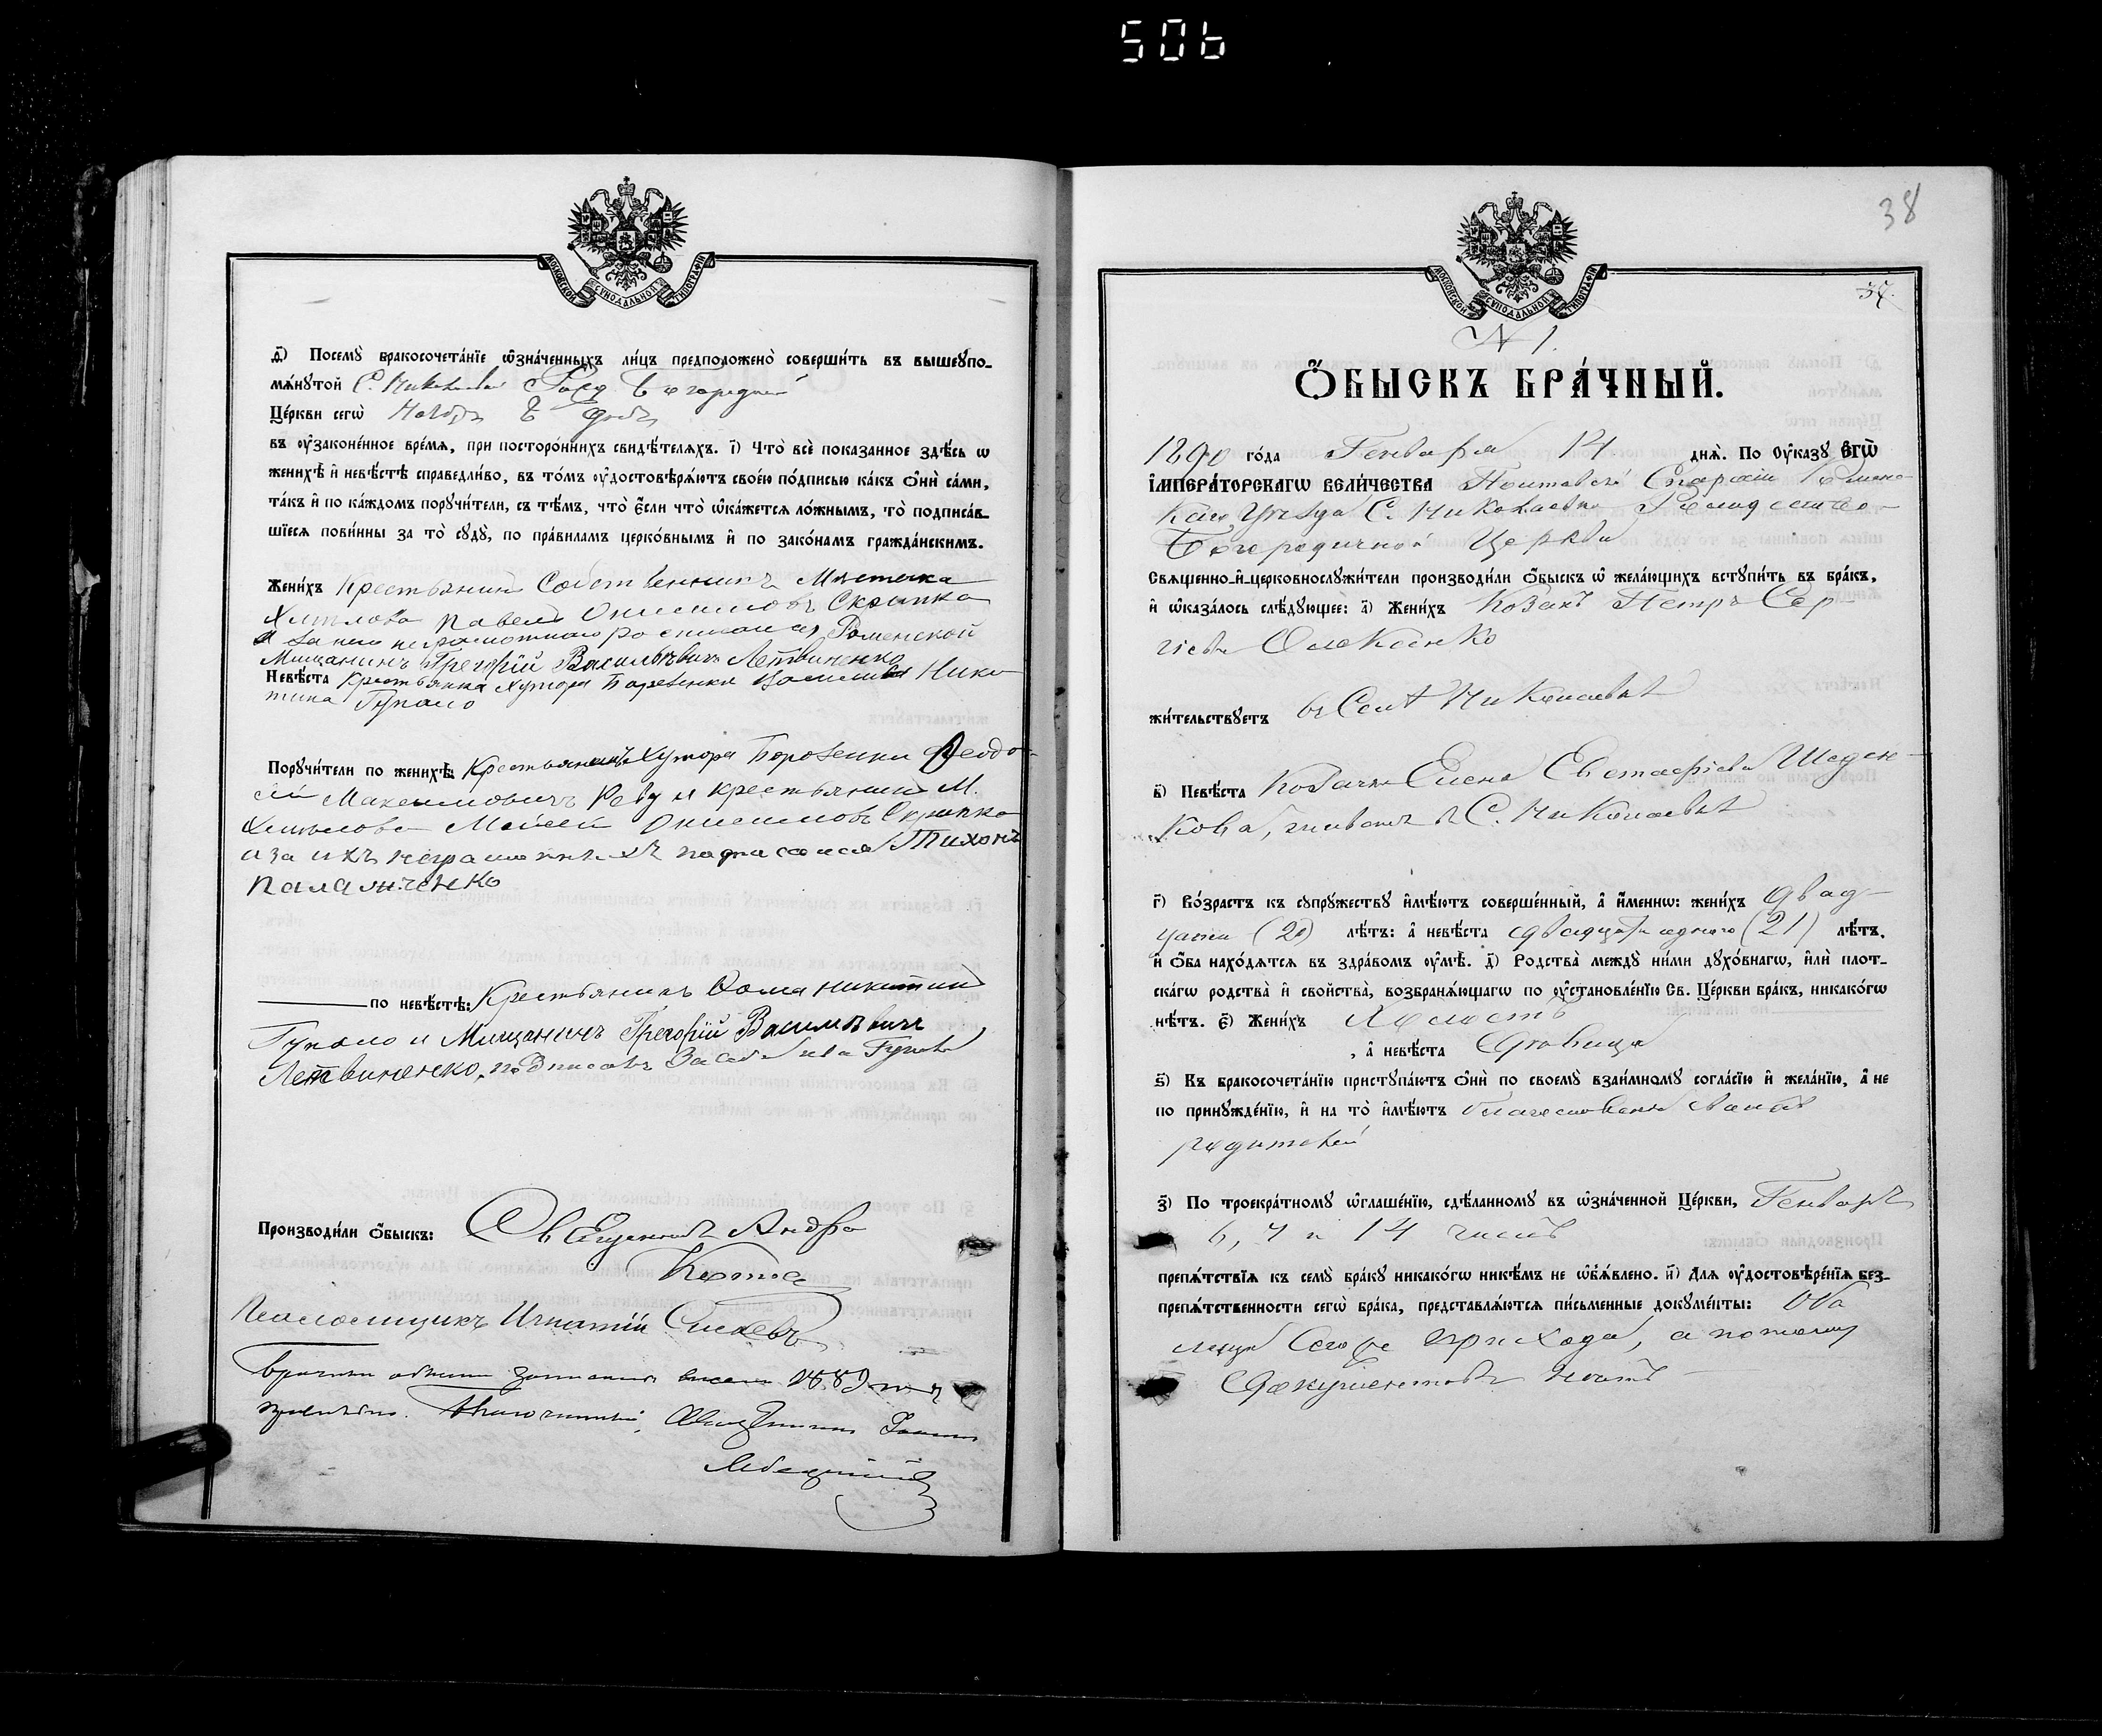 506
МОСКОВСКОЙ СУНОДАЛЬНОЙ ТИПОГРАФІИ
д҃і) Посемꙋ̀ бракосочета́нїе ѡ҆зна́ченныхъ ли́цъ предположено̀ соверши́ть въ вышеꙋпо-
мѧ́нꙋтой С. Николаевки Рожд. Богородич
Це́ркви сегѡ̀ Ноября дня
въ ᲂу҆зако́ненное вре́мѧ, при посторо́ннихъ свидѣ́телѧхъ. і҃) Что̀ всѐ показанное здѣ́сь ѡ
женихѣ̀ и҆ невѣ́стѣ справедли́во, въ то́мъ ᲂу҆достовѣрѧ́ютъ свое́ю по́дписью ка́къ ѻ҆нѝ са́ми,
та́къ и҆ по ка́ждомъ порꙋчи́тели, съ тѣ́мъ, что̀ є҆́сли что̀ ѡ҆ка́жетсѧ ло́жнымъ, то̀ подписа́в-
шїесѧ пови́нны за то̀ сꙋдꙋ̀, по пра́виламъ церко́внымъ и҆ по зако́намъ гражда́нскимъ.
Жени́хъ Крестьянинъ Собственникъ Мѣстечка
Хмѣлова Павелъ Онисимовъ Скрипка
а за него неграмотнаго росписался Роменской
Мищанинъ Григорій Васильевичъ Летвиненко
Невѣ́ста Крестьянка Хутора Борозенки Василиса Ники
тина Гупало
Порꙋчи́тели по женихѣ̀: Крестьянинъ Хутора Борозенки Феодо-
сій Максимовичъ Рева и крестьянинъ М.
Хмѣлова Моисей Онисимовъ Скрипка
а за ихъ неграмотныхъ подписался Тихонъ
Паламаченко
по невѣ́стѣ: Крестьянинъ Фома Никитинъ
Гупало и Мищанинъ Григорій Васильевичъ
Летвиненко, подписавъ За себя и за Гупала
Производи́ли ѻ҆́быскъ: Священникъ Андрей
Псаломщикъ Игнатій
Брачные обыски записанны 1889 годъ
Благочинный, Священникъ Іоаннъ
38
МОСКОВСКОЙ СУНОДАЛЬНОЙ ТИПОГРАФІИ
37.
N 1.
Ѻ҆́БЫСКЪ БРА́ЧНЫЙ.
1890 го́да Генваря 14 днѧ̀. По ᲂу҆ка́зꙋ Є҆ГѠ̀
І҆МПЕРА́ТОРСКАГѠ ВЕЛИ́ЧЕСТВА Полтавской Епархіи Ромен-
скаго Уѣзда С. Николаевки Рождество-
Богородичной Церкви
Свѧще́нно-и҆-церковнослꙋжи́тели производи́ли ѻ҆́быскъ ѡ҆ жела́ющихъ встꙋпи́ть въ бра́къ,
и҆ ѡ҆каза́лось слѣ́дꙋющее: а҃) Жени́хъ Козакъ Петръ Сер-
гіевъ Олексенко
жи́тельствꙋетъ въ Селѣ Николаевкѣ
в҃) Невѣ́ста Козачка Елена Евстафіева Шеден-
кова, живетъ въ С. Николаевкѣ
г҃) Во́зрастъ къ сꙋпрꙋ́жествꙋ и҆мѣ́ютъ соверше́нный, а҆ и҆́меннѡ: жени́хъ двад-
цати (20) лѣ́тъ: а҆ невѣ́ста двадцати одного (21) лѣ́тъ,
и҆ ѻ҆́ба нахо́дѧтсѧ въ здра́вомъ ᲂу҆мѣ̀. д҃) Родства̀ междꙋ̀ ни́ми дꙋхо́внагѡ, и҆лѝ плот-
ска́гѡ родства̀ и҆ свойства̀, возбранѧ́ющагѡ по ᲂу҆становле́нїю Св. Це́ркви бра́къ, никако́гѡ
нѣ́тъ. є҃) Жени́хъ Холостъ
, а҆ невѣ́ста Дѣвица
ѕ҃) Къ бракосочета́нїю пристꙋпа́ютъ ѻ҆нѝ по своемꙋ̀ взаи́мномꙋ согла́сїю и҆ жела́нїю, а҆ не
по принꙋжде́нїю, и҆ на то̀ и҆мѣ́ютъ благословеніе своихъ
родителей
з҃) По троекра́тномꙋ ѡ҆глаше́нїю, сдѣ́ланномꙋ въ ѡ҆зна́ченной Це́ркви, Генваря
6, 7 и 14 числъ
препѧ́тствїѧ къ семꙋ̀ бра́кꙋ никако́гѡ никѣ́мъ не ѡ҆б̾ѧ́влено. и҃) Длѧ ᲂу҆достовѣре́нїѧ без-
препѧ́тственности сегѡ̀ бра́ка, представлѧ́ютсѧ пи́сьменные докꙋме́нты: Оба
лица Сего прихода, а потому
Документовъ нѣтъ